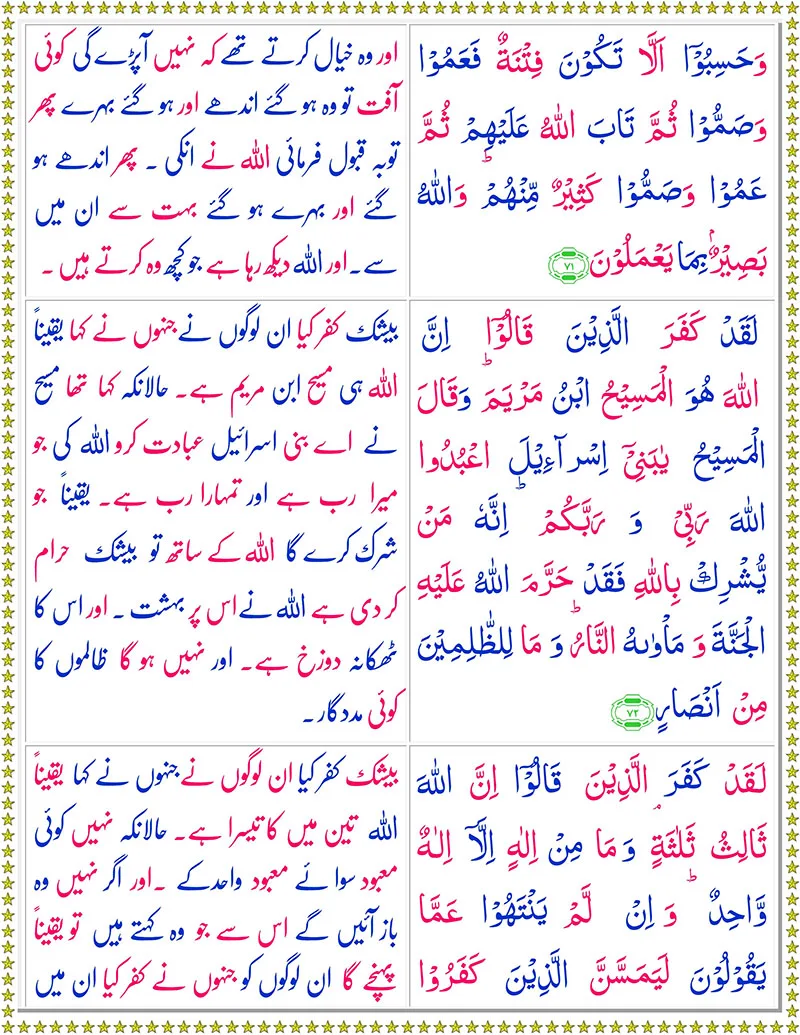 وَحَسِبُوْۤا اَلَّا تَكُوْنَ فِتْنَةٌ فَعَمُوْا
وَصَمُّوْا ثُمَّ تَابَ اللّٰهُ عَلَيْهِمْ ثُمَّ
عَمُوْا وَصَمُّوْا كَثِيْرٌ مِّنْهُمْ ؕ وَاللّٰهُ
بَصِيْرٌۢ بِمَا يَعْمَلُوْنَ ﴿۷۱﴾
اور وہ خیال کرتے تھے کہ نہیں آپڑے گی کوئی
آفت تو وہ ہو گئے اندھے اور ہو گئے بہرے پھر
توبہ قبول فرمائی اللہ نے انکی ۔ پھر اندھے ہو
گئے اور بہرے ہو گئے بہت سے ان میں
سے۔ اور اللہ دیکھ رہا ہے جو کچھ وہ کرتے ہیں ۔
لَقَدْ كَفَرَ الَّذِيْنَ قَالُوْۤا اِنَّ
اللّٰهَ هُوَ الْمَسِيْحُ ابْنُ مَرْيَمَ ؕ وَقَالَ
الْمَسِيْحُ يٰبَنِيْۤ اِسْرَآءِيْلَ اعْبُدُوا
اللّٰهَ رَبِّيْ وَ رَبَّكُمْ ؕ اِنَّهٗ مَنْ
يُّشْرِكْ بِاللّٰهِ فَقَدْ حَرَّمَ اللّٰهُ عَلَيْهِ
الْجَنَّةَ وَ مَاْوٰىهُ النَّارُ ؕ وَ مَا لِلظّٰلِمِيْنَ
مِنْ اَنْصَارٍ ﴿۷۲﴾
بیشک کفر کیا ان لوگوں نے جنہوں نے کہا یقیناً
اللہ ہی مسیح ابن مریم ہے۔ حالانکہ کہا تھا مسیح
نے اے بنی اسرائیل عبادت کرو اللہ کی جو
میرا رب ہے اور تمہارا رب ہے۔ یقیناً جو
شرک کرے گا اللہ کے ساتھ تو بیشک حرام
کر دی ہے اللہ نے اس پر بہشت ۔ اور اس کا
ٹھکانہ دوزخ ہے۔ اور نہیں ہو گا ظالموں کا
کوئی مددگار ۔
لَقَدْ كَفَرَ الَّذِيْنَ قَالُوْۤا اِنَّ اللّٰهَ
ثَالِثُ ثَلٰثَةٍ ۘ وَ مَا مِنْ اِلٰهٍ اِلَّاۤ اِلٰهٌ
وَّاحِدٌ ؕ وَ اِنْ لَّمْ يَنْتَهُوْا عَمَّا
يَقُوْلُوْنَ لَيَمَسَّنَّ الَّذِيْنَ كَفَرُوْا
بیشک کفر کیا ان لوگوں نے جنہوں نے کہا یقیناً
اللہ تین میں کا تیسرا ہے۔ حالانکہ نہیں کوئی
معبود سوائے معبود واحد کے ۔اور اگر نہیں وہ
باز آئیں گے اس سے جو وہ کہتے ہیں تو یقیناً
پہنچے گا ان لوگوں کو جنہوں نے کفر کیا ان میں